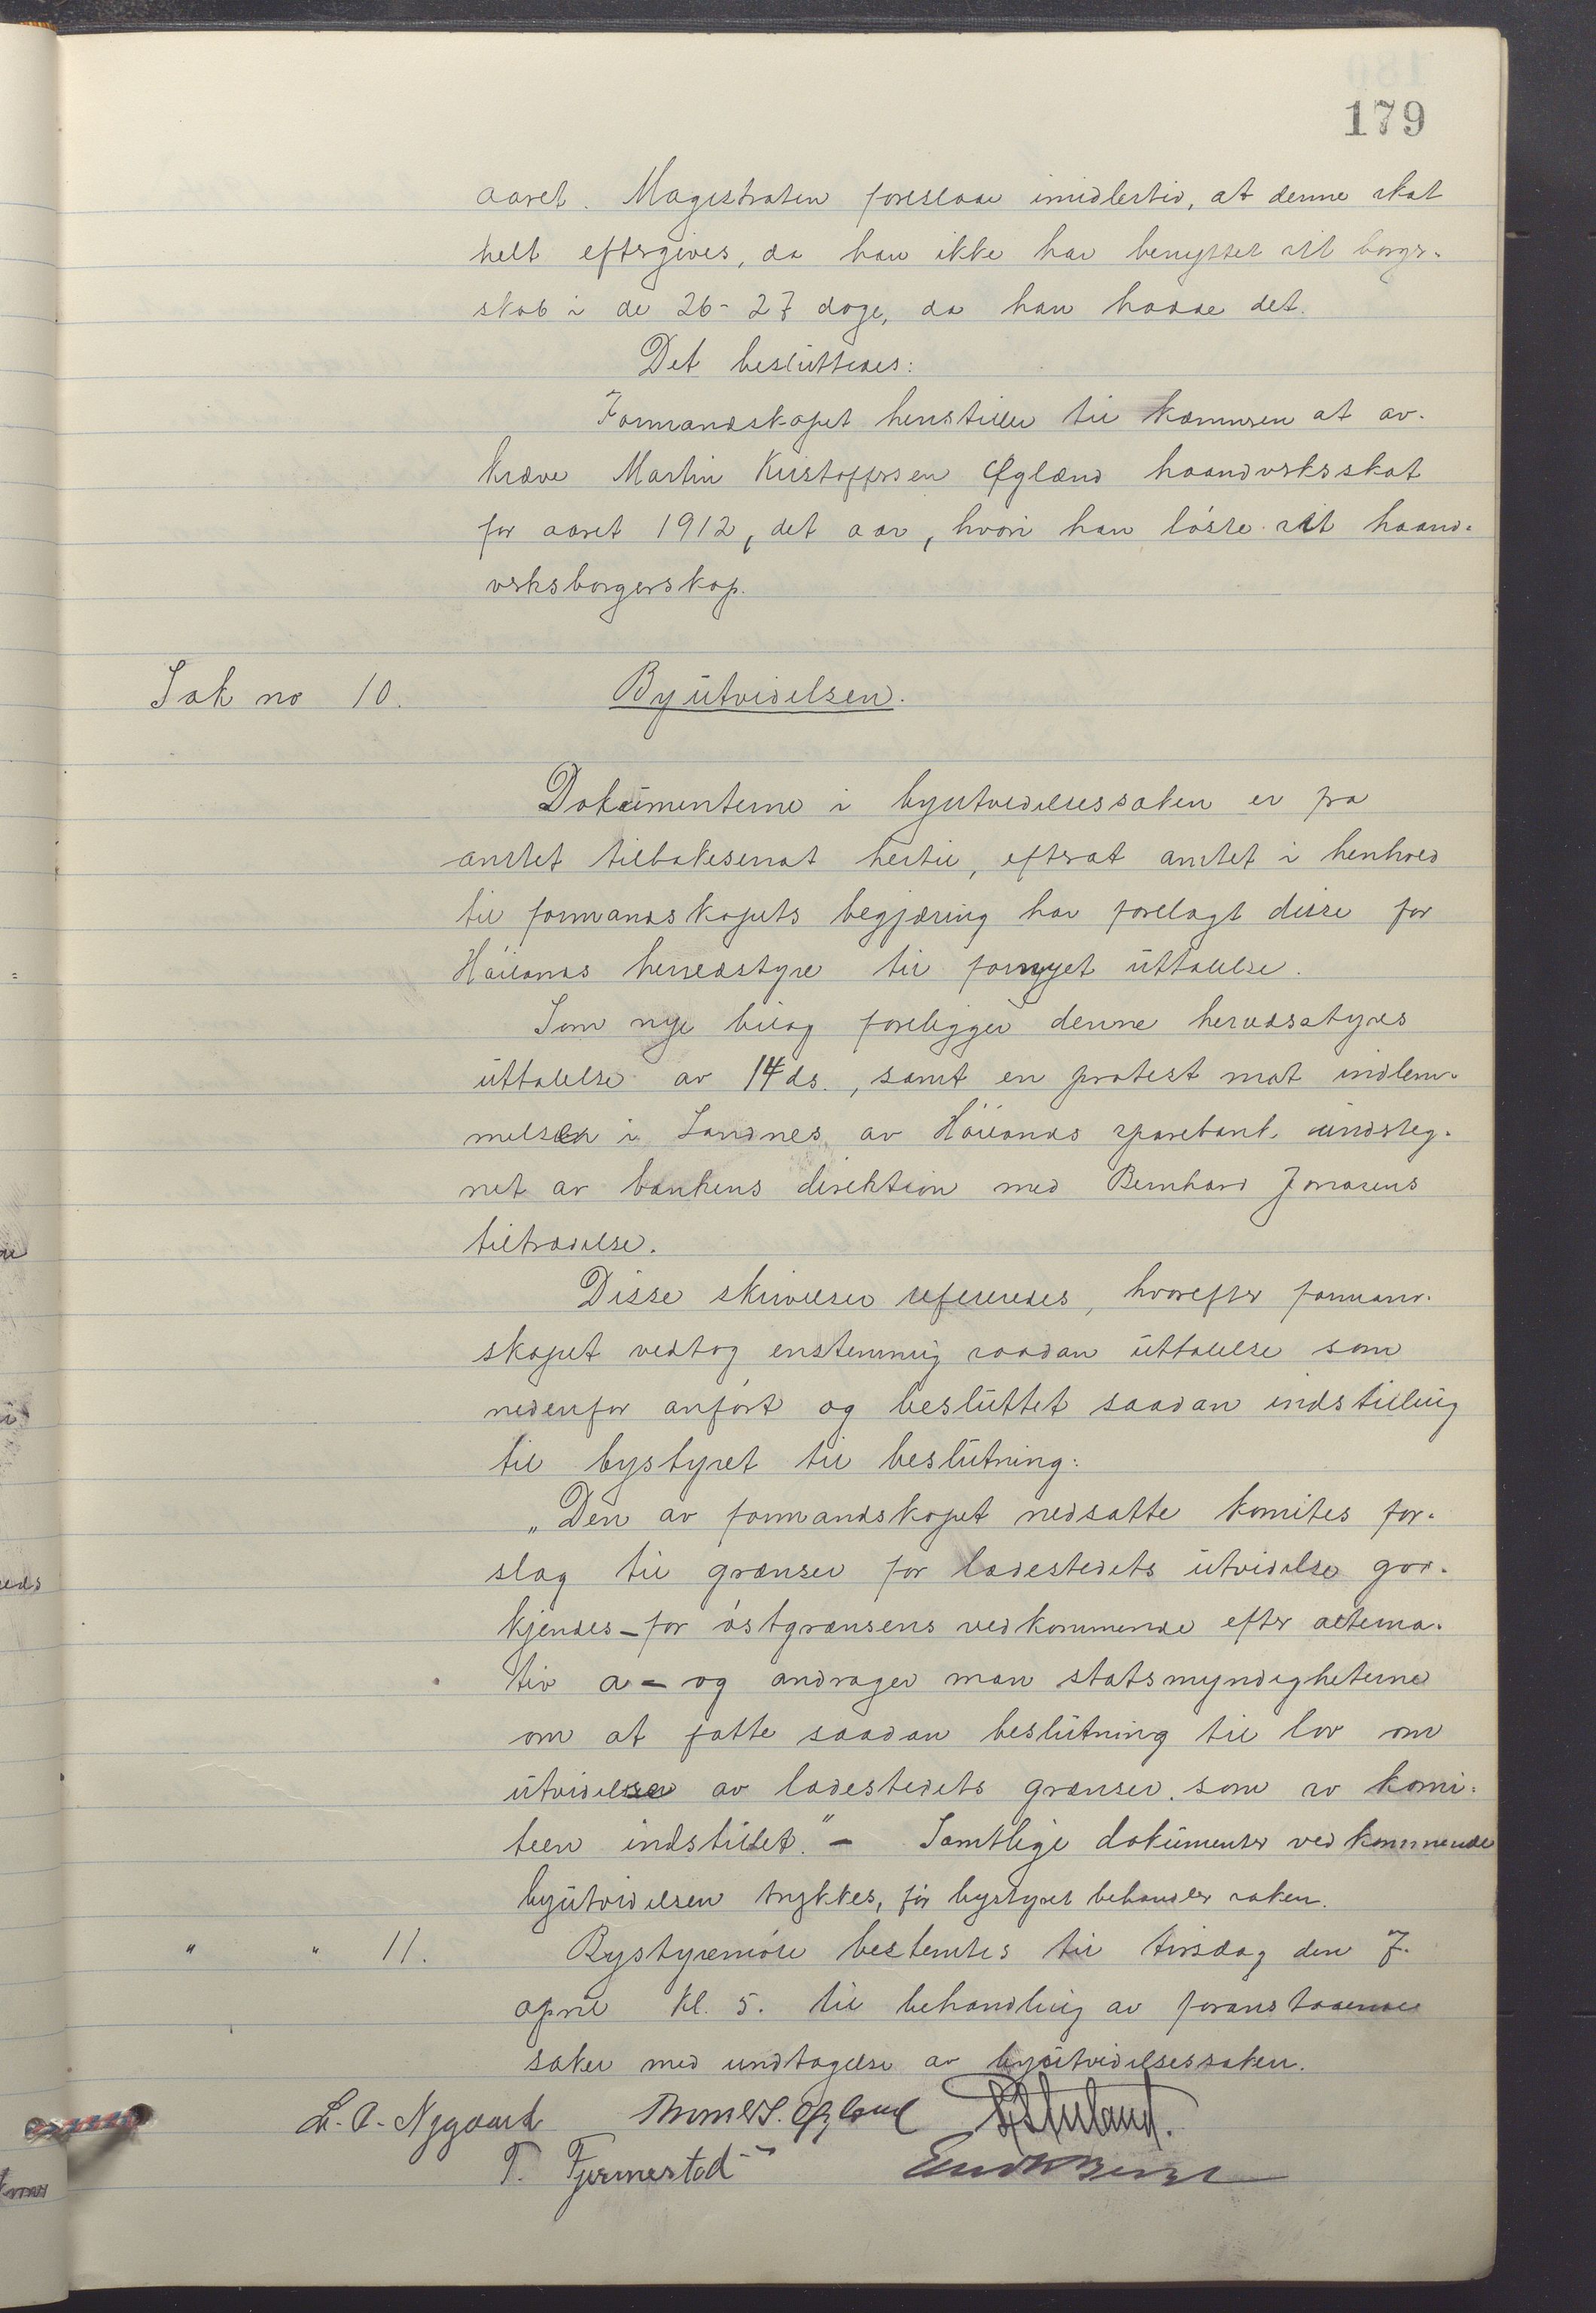 179
aaret. Magistraten foreslaar imidlertid, at denne skat
helt eftergives, da han ikke har benyttet sit borger-
skab i de 26-27 dage, da han hadde det.
Det besluttedes:
Formandskapet henstiller til kæmneren at av-
kræve Martin Kristoffersen Øglænd haandverksskat
for aaret 1912, det aar, hvori han löste sit haand-
verksborgerskap.
Sak no 10. Byutvidelsen.
Dokumenterne i byutvidelsessaken er fra
amtet tilbakesendt hertil, efterat amtet i henhold
til formandskapets begjæring har forelagt disse for
Höilands herredstyre til fornyet uttalelse.
Som nye bilag foreligger denne herredsstyres
uttalelse av 14 ds., samt en protest mot indlem-
melsen i Sandnes av Höilands sparebank undteg-
net av bankens direktion med Bernhard Jonasens
tiltrædelse.
Disse skrivelser refereredes, hvorefter formand-
skapet vedtog enstemmig saadan uttalelse som
nedenfor anfört og besluttet saadan indstilling
til bystyret til beslutning:
„Den av formandskapet nedsatte komites for-
slag til grænser for ladestedets utvidelse god-
kjendes – for östgrænsens vedkommende efter alterna-
tiv a – og andrager man statsmyndigheterne
om at fatte saadan beslutning til lov om
utvidelse av ladestedets grænser som av komi-
teen indstillet." – Samtlige dokumenter vedkommende
byutvidelsen trykkes, för bystyret behandler saken.
" " 11. Bystyremöte bestemtes til tirsdag den 7.
april kl. 5. til behandling av foranstaaende
saker med undtagelse av byutvidelsessaken.
L. A. Nygaard Øglænd
T. Fjermestad